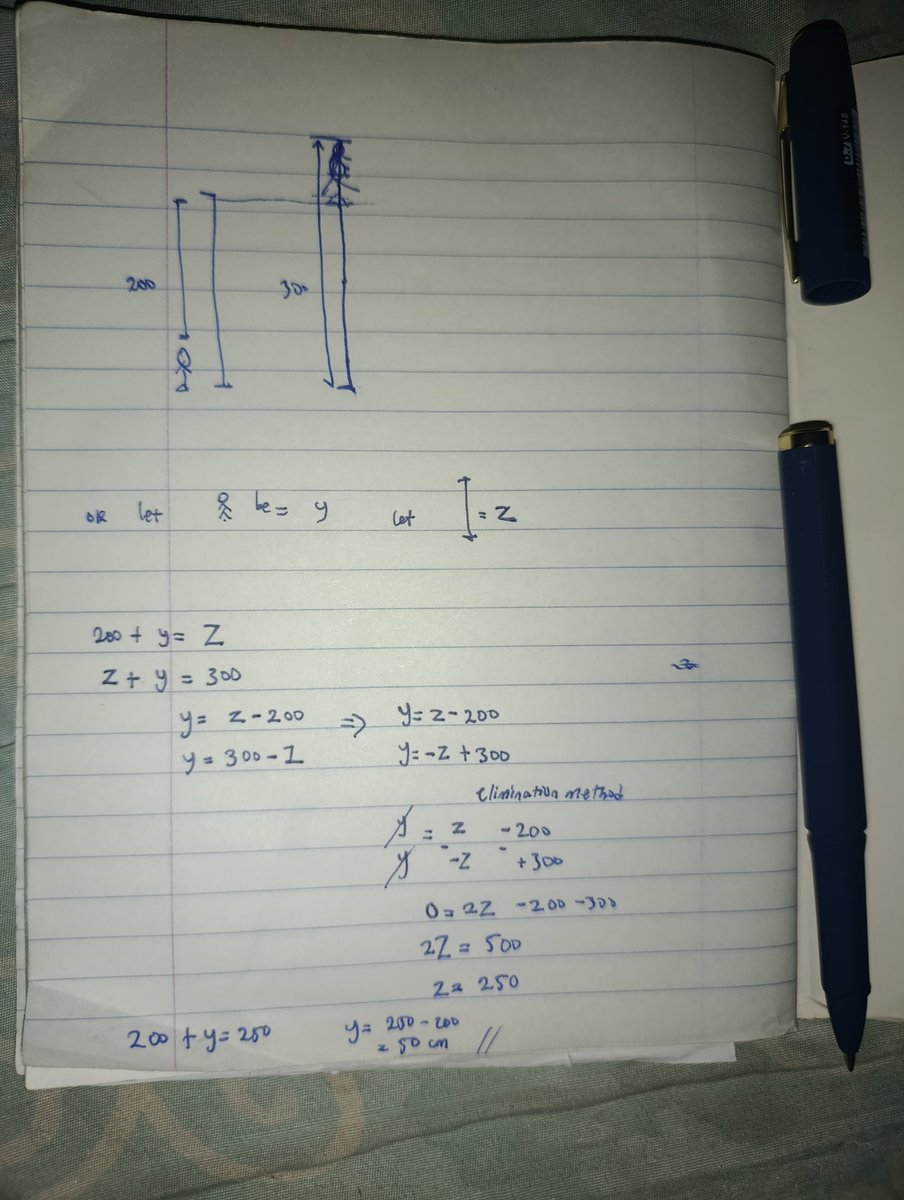 200
300
or let be = y let = Z
200 + y = Z
Z + y = 300
y = z - 200 => y = z - 200
y = 300 - Z y = -Z + 300
Elimination method
y = z - 200
y - -Z - + 300
0 = 2Z - 200 - 300
2Z = 500
z = 250
200 + y = 250 y = 250 - 200
= 50 cm //
UB V-148